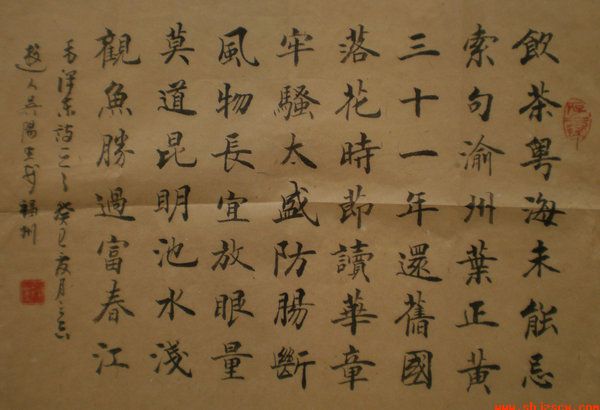 飲茶粤海未能忘
索句渝州葉正黄
三十一年還舊國
落花時節讀華章
牢騷太盛防腸斷
風物長宜放眼量
莫道昆明池水淺
觀魚勝過富春江
毛澤东詩 癸巳夏月
福州